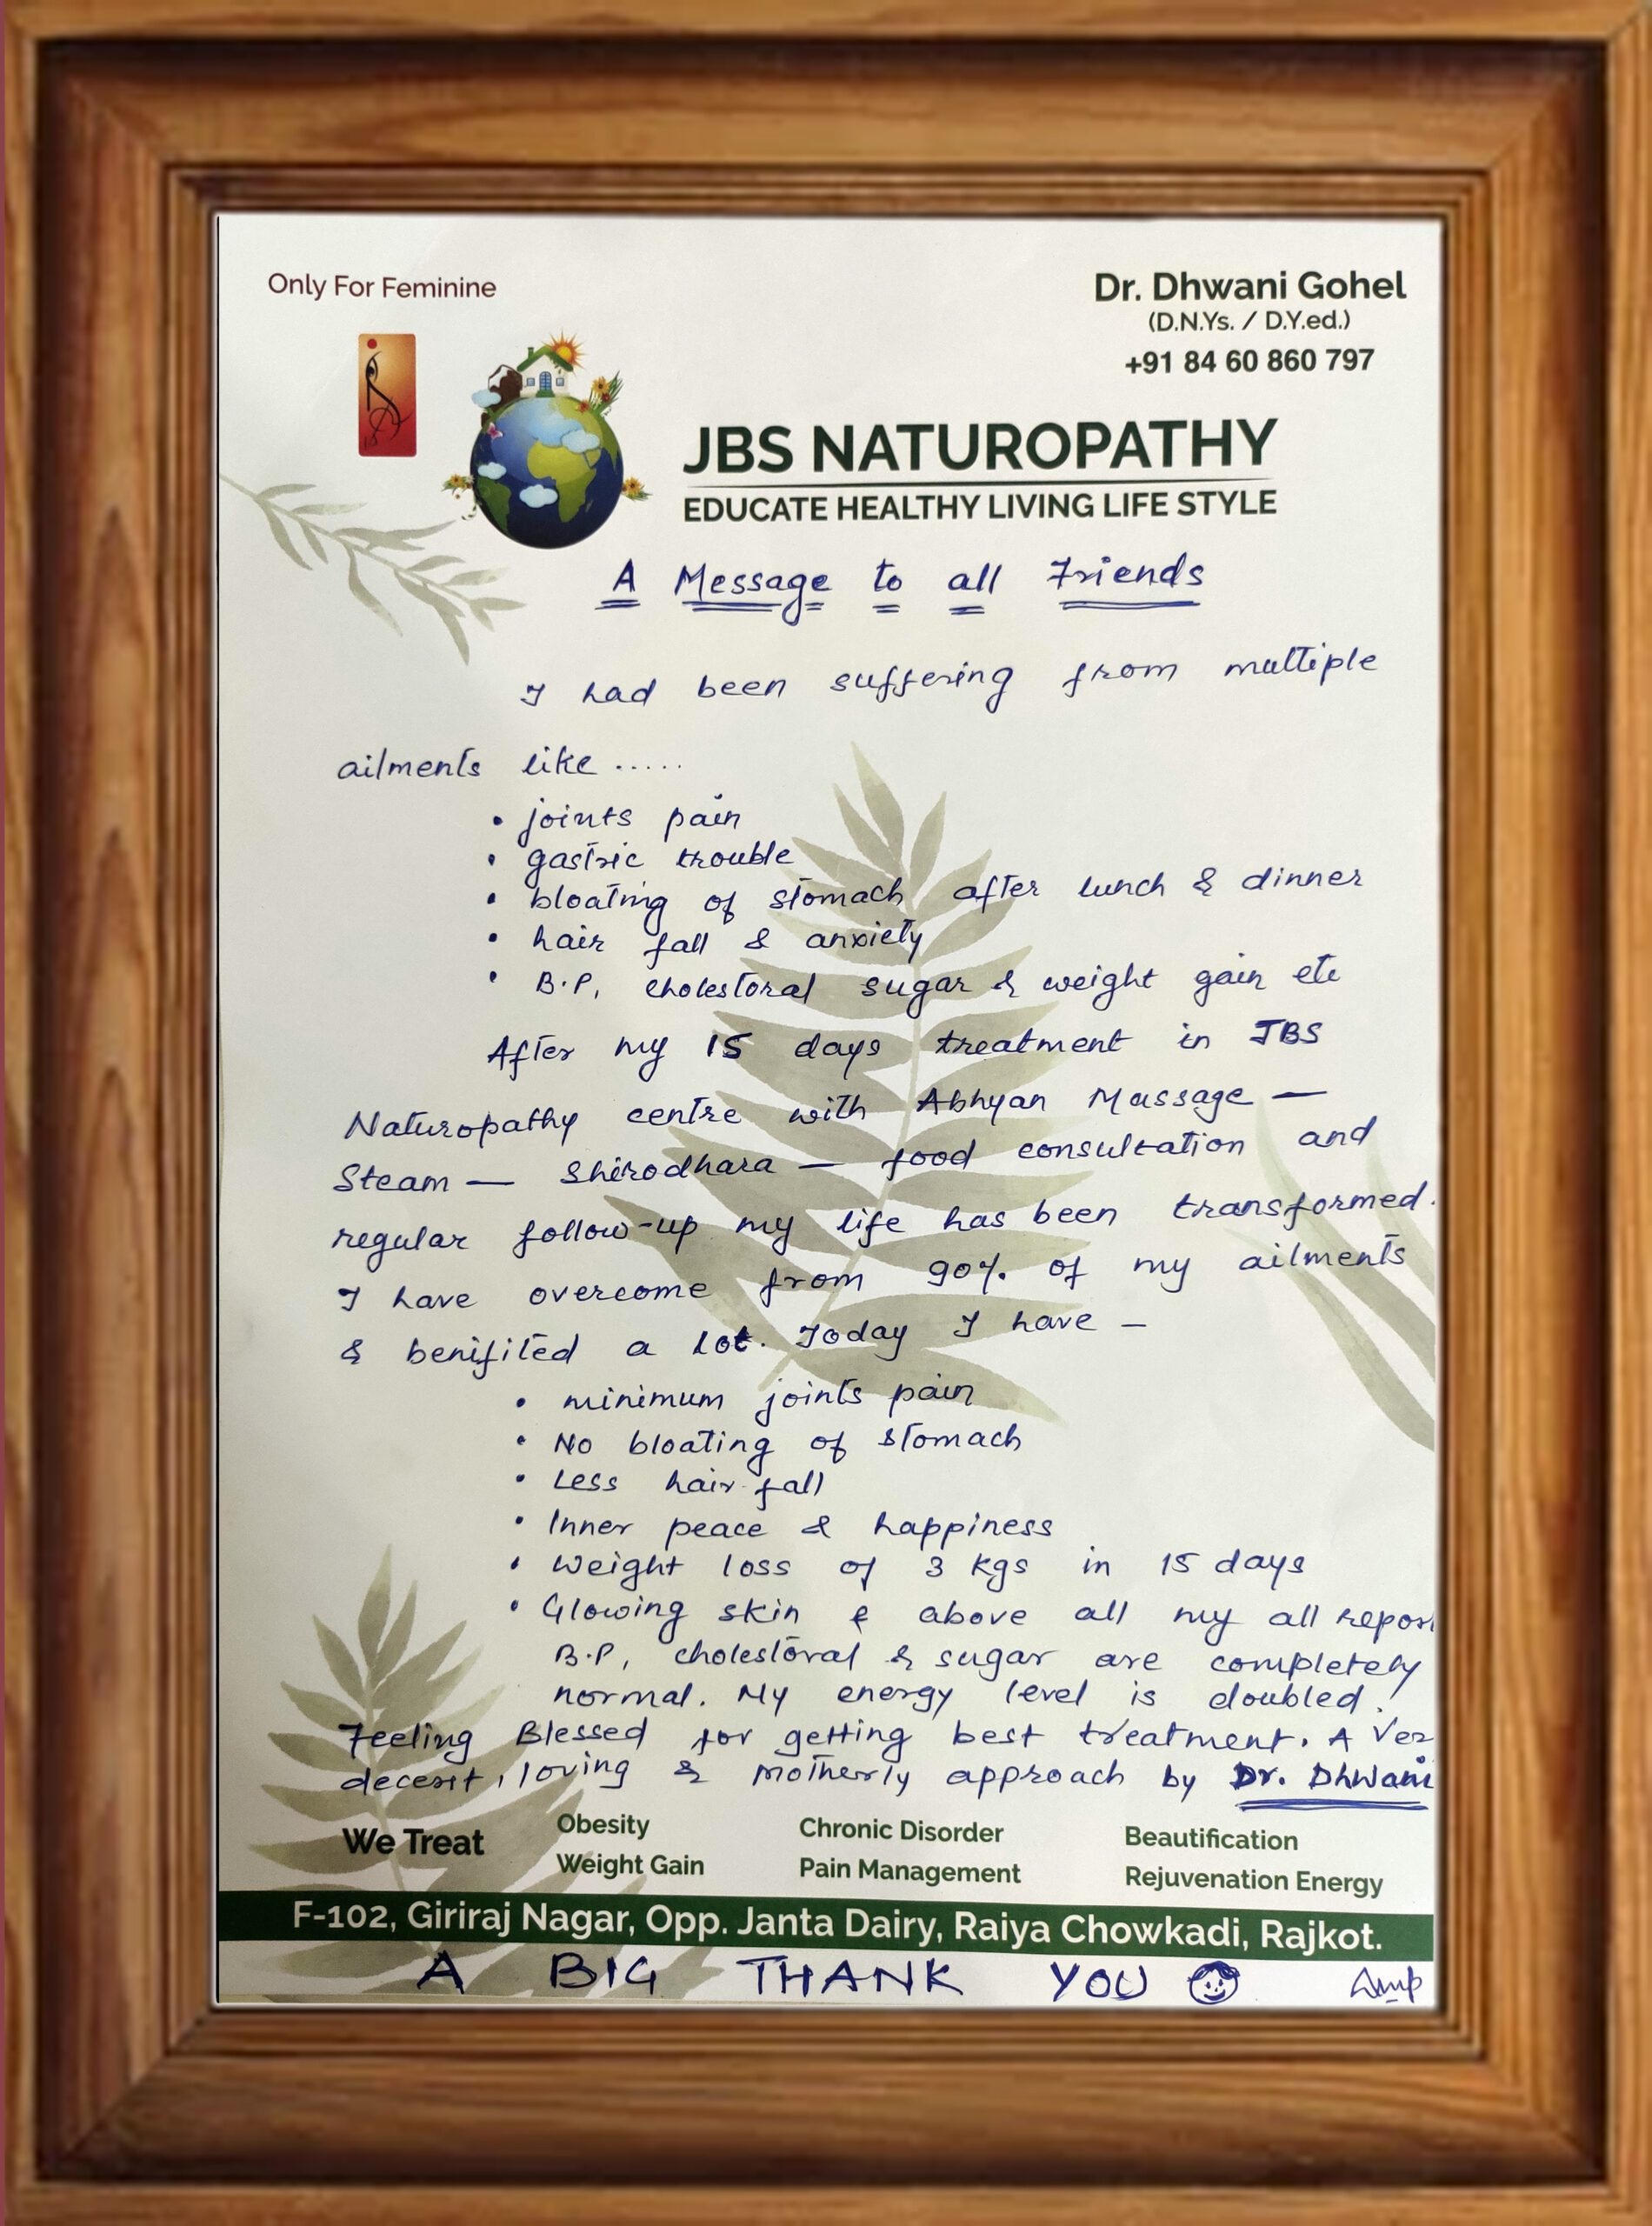 Only For Feminine
Dr. Dhwani Gohel
(D.N.Ys. / D.Y.ed.)
+91 84 60 860 797
JBS NATUROPATHY
EDUCATE HEALTHY LIVING LIFE STYLE
A Message to all Friends
I had been suffering from multiple
ailments like .....
• joints pain
• gastric trouble
• bloating of stomach after lunch & dinner
• hair fall & anxiety
• B.P, cholestoral sugar & weight gain etc
After my 15 days treatment in JBS
Naturopathy centre with Abhyan Massage —
Steam — Shirodhara — food consultation and
regular follow-up my life has been transformed.
I have overcome from 90% of my ailments
& benifited a lot. Today I have -
• minimum joints pain
• No bloating of stomach
• Less hair fall
• Inner peace & happiness
• Weight loss of 3 kgs in 15 days
• Glowing skin & above all my all repor
B.P, cholestoral & sugar are completely
normal. My energy level is doubled!
Feeling Blessed for getting best treatment. A Ver
decent, loving & motherly approach by Dr. Dhwani
We Treat
Obesity
Chronic Disorder
Beautification
Weight Gain
Pain Management
Rejuvenation Energy
F-102, Giriraj Nagar, Opp. Janta Dairy, Raiya Chowkadi, Rajkot.
A BIG THANK YOU